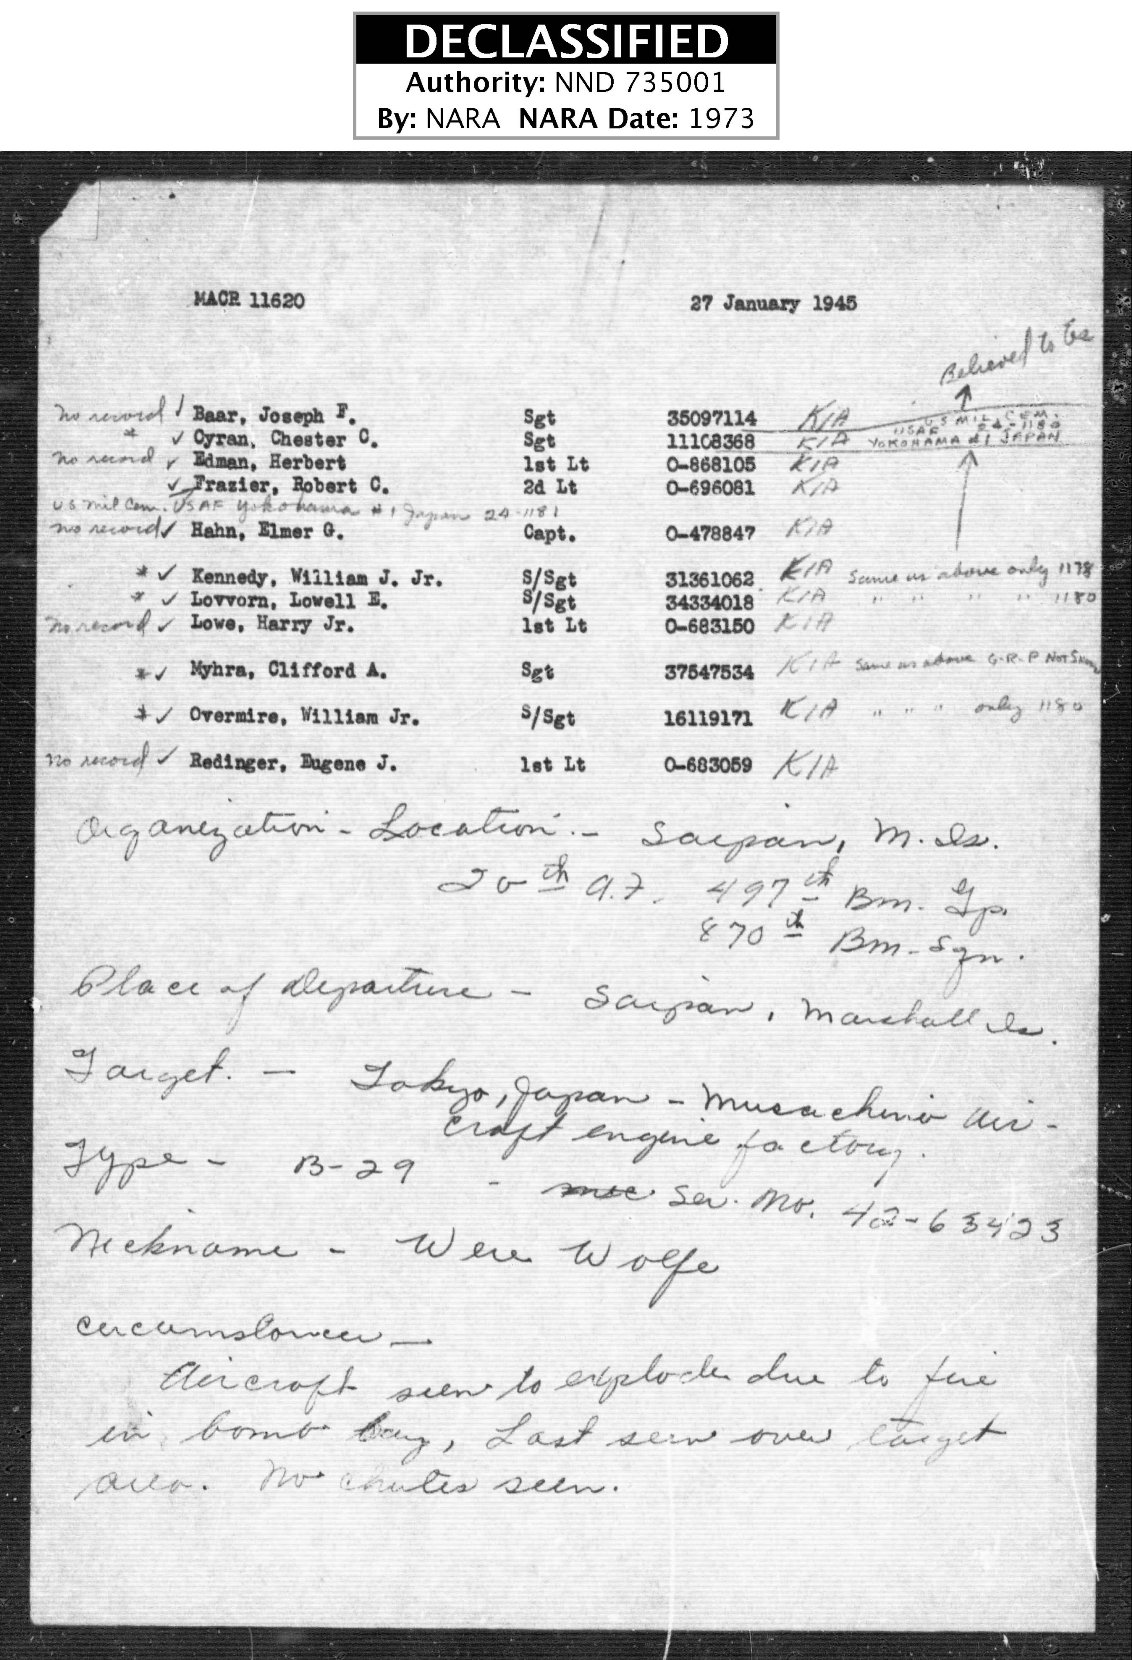 DECLASSIFIED
Authority: NND 735001
By: NARA NARA Date: 1973
MACR 11620 27 January 1945
Believed to be
no record ✓ Baar, Joseph F. Sgt 35097114 KIA US MIL. CEM.
* ✓ Cyran, Chester C. Sgt 11108368 KIA USAF 24-1180 YOKOHAMA #1 JAPAN
no record ✓ Edman, Herbert 1st Lt O-868105 KIA
✓ Frazier, Robert C. 2d Lt O-696081 KIA
US Mil Cem. USAF Yokohama #1 Japan 24-1181
no record ✓ Hahn, Elmer G. Capt. O-478847 KIA
* ✓ Kennedy, William J. Jr. S/Sgt 31361062 KIA Same as above only 1178
* ✓ Lovvorn, Lowell E. S/Sgt 34334018 KIA " " " " 1180
no record ✓ Lowe, Harry Jr. 1st Lt O-683150 KIA
* ✓ Myhra, Clifford A. Sgt 37547534 KIA Same as above G-R-P Not Shown
* ✓ Overmire, William Jr. S/Sgt 16119171 KIA " " " only 1180
no record ✓ Redinger, Eugene J. 1st Lt O-683059 KIA
Organization - Location - Saipan, M. Is.
20th A.F. 497th Bm. Gp.
870th Bm. Sqn.
Place of departure - Saipan, Marshall Is.
Target. - Tokyo, Japan - Musachino Air-
craft engine factory.
Type - B-29 - Ser. No. 42-63423
Nickname - Were Wolfe
Circumstances -
Aircraft seen to explode due to fire
in bomb bay, Last seen over target
area. No chutes seen.